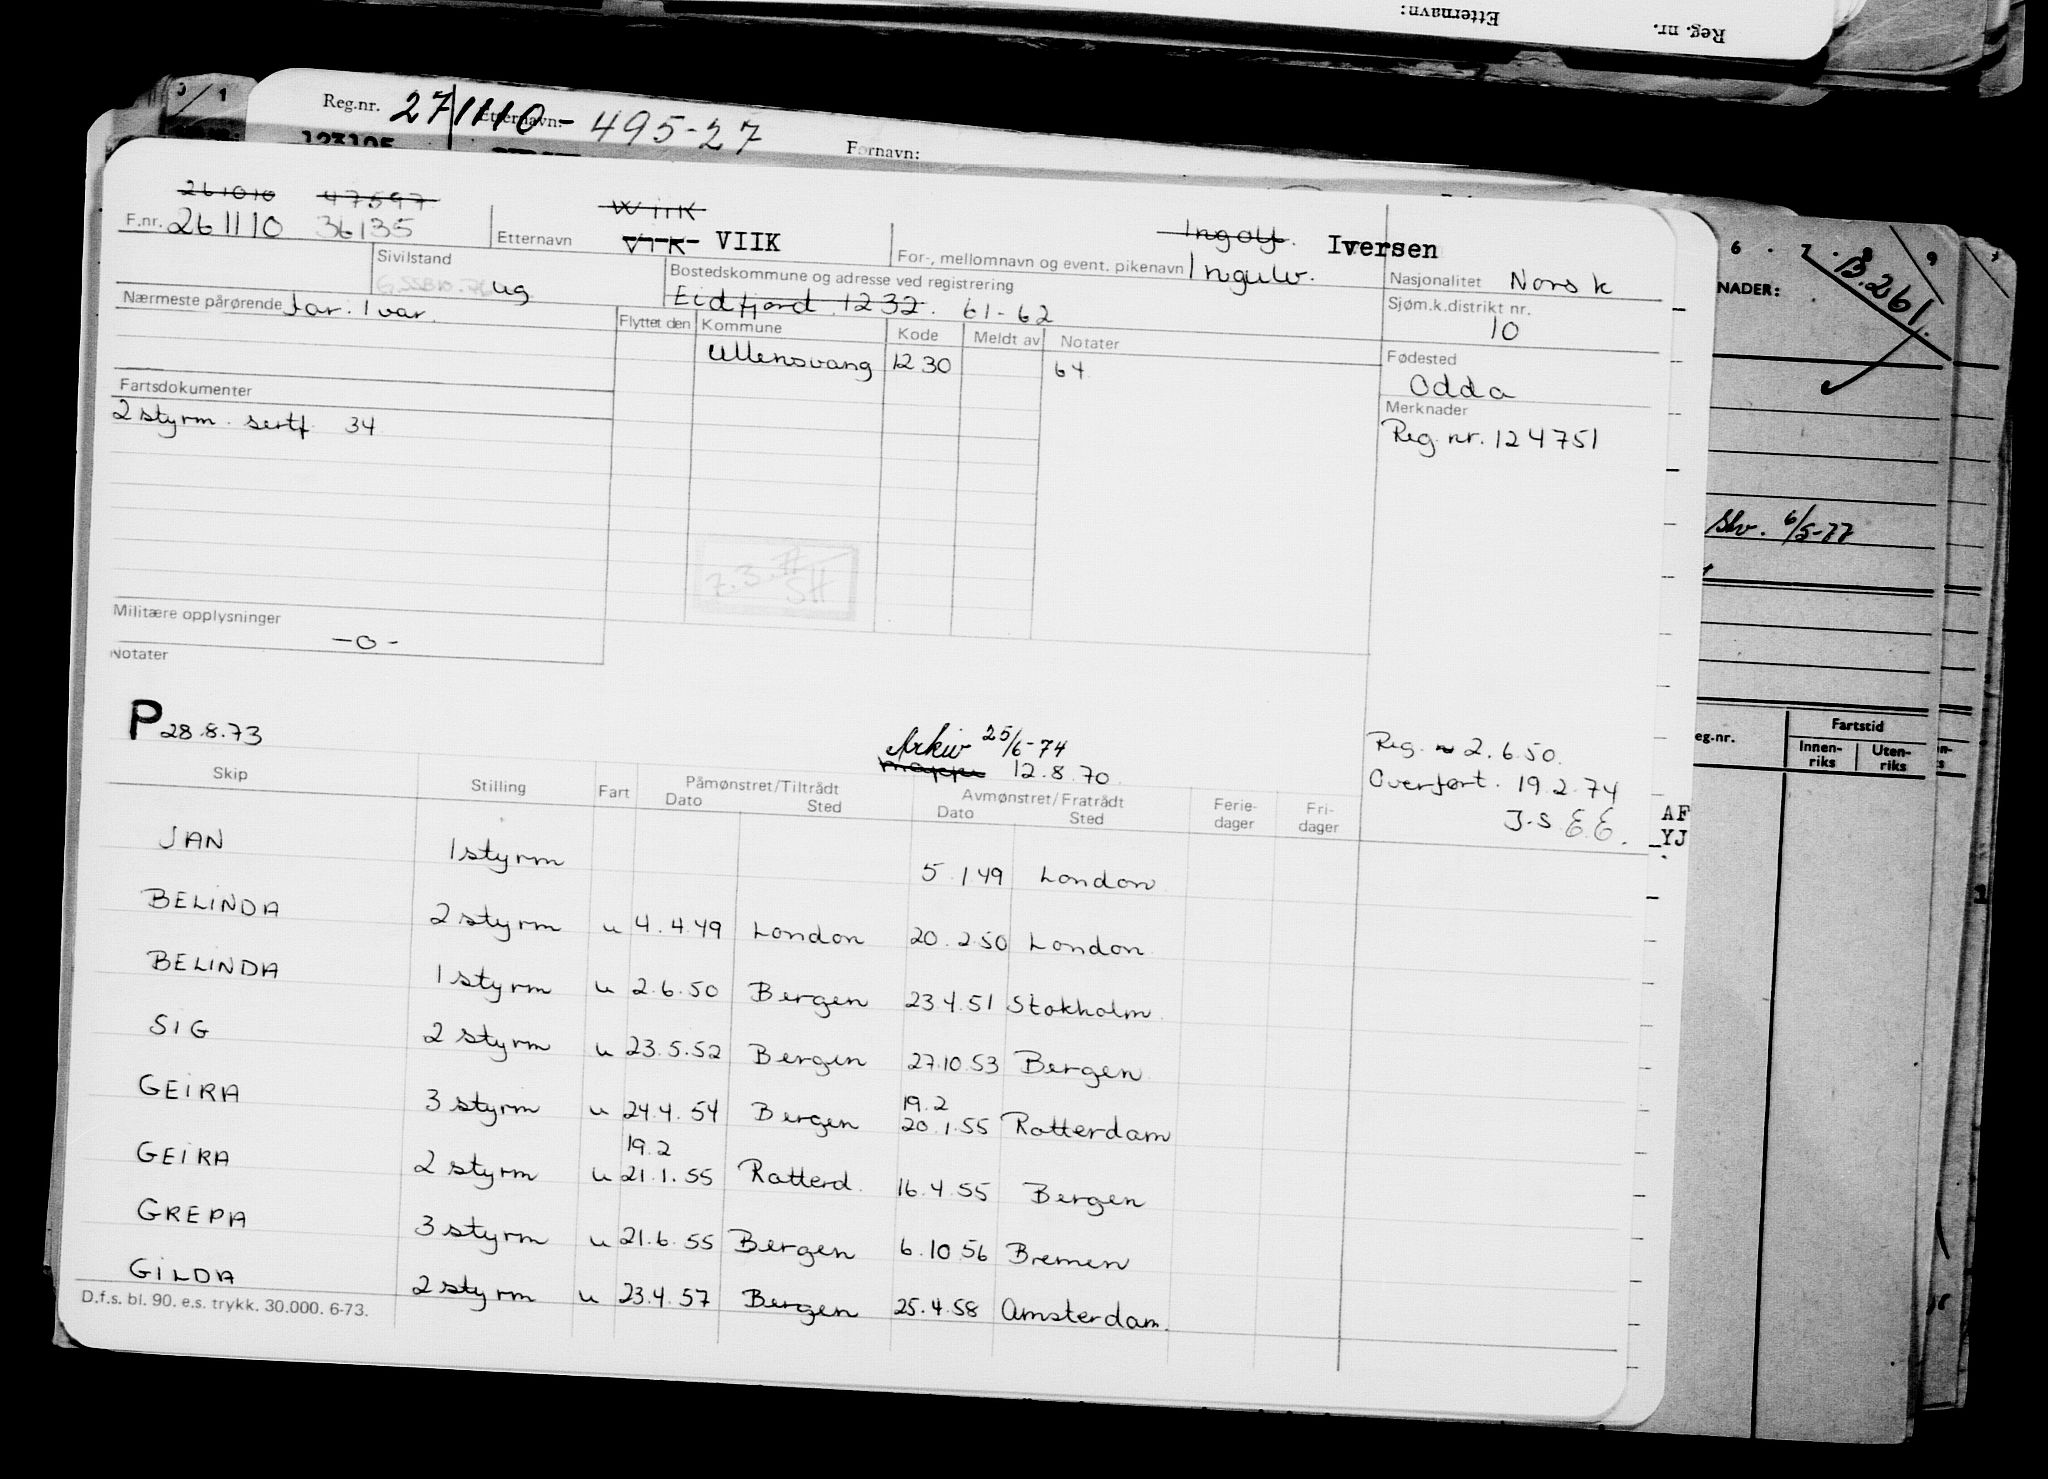 Etternavn:
Reg. nr.
Reg.nr. 271110- Etternavn: 495-27 Fornavn:
123105
261010 47597 Wiik Ingolf.
F.nr. 261110 36135 Etternavn Vik VIIK For-, mellomnavn og event. pikenavn Ingulv. Iversen
Sivilstand ug Bostedskommune og adresse ved registrering Nasjonalitet Norsk
Nærmeste pårørende Far: Ivar. Eidfjord 1232. 61-62 Sjøm.k.distrikt nr. 10
Flyttet den Kommune Kode Meldt av Notater
Ullensvang 1230 64 Fødested
Odda
Fartsdokumenter Merknader
2 styrm. sertf 34 Reg. nr. 124751
7.3.77
SH
Militære opplysninger -o-
Notater
P 28.8.73 Arkiv 25/6-74 Reg. 2.6.50.
mappe 12.8.70. Overført. 19.2.74
J.S E.E.
Skip Stilling Fart Påmønstret/Tiltrådt Avmønstret/Fratrådt Ferie- Fri-
Dato Sted Dato Sted dager dager
JAN 1 styrm 5.1 49 London
BELINDA 2 styrm u 4.4.49 London 20.2.50 London
BELINDA 1 styrm u 2.6.50 Bergen 23.4.51 Stokholm
SIG 2 styrm u 23.5.52 Bergen 27.10.53 Bergen
GEIRA 3 styrm u 24.4.54 Bergen 19.2 20.1.55 Rotterdam
GEIRA 2 styrm u 19.2 21.1.55 Rotterd. 16.4.55 Bergen
GREPA 3 styrm u 21.6.55 Bergen 6.10.56 Bremen
GILDA 2 styrm u 23.4.57 Bergen 25.4.58 Amsterdam.
D.f.s. bl. 90. e.s. trykk. 30.000. 6-73.
AF
YJ
6 . 7 . 8 9
B.261.
NADER:
Skv. 6/5-77
eg.nr. Fartstid
Innen-
riks Uten-
riks